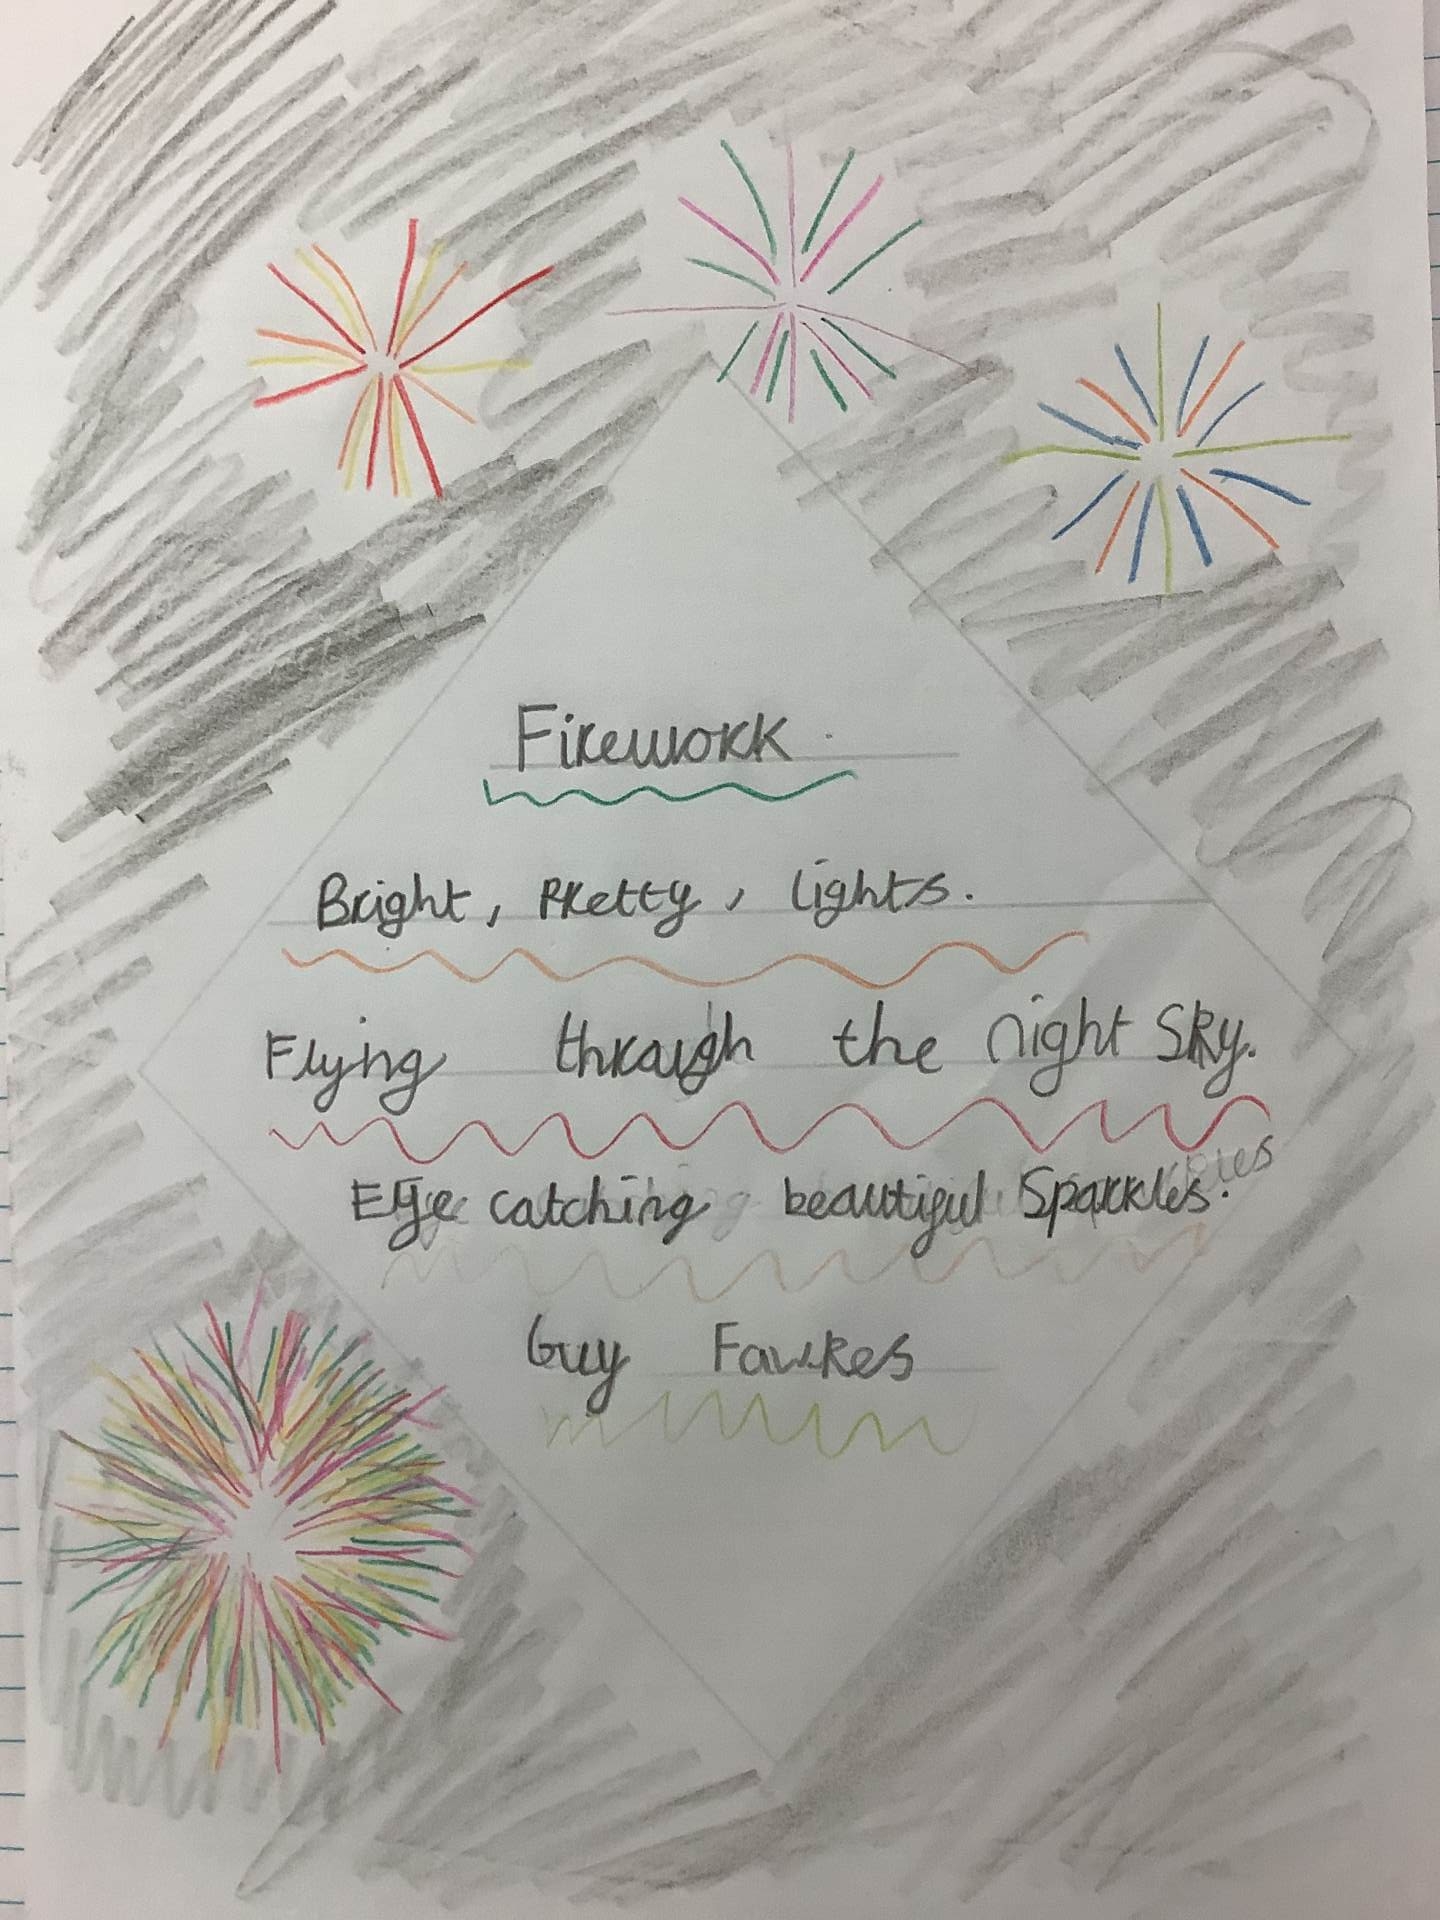 Firework
Bright, Pretty, lights.
Flying through the night Sky.
Eye catching beautiful Sparkles.
Guy Fawkes